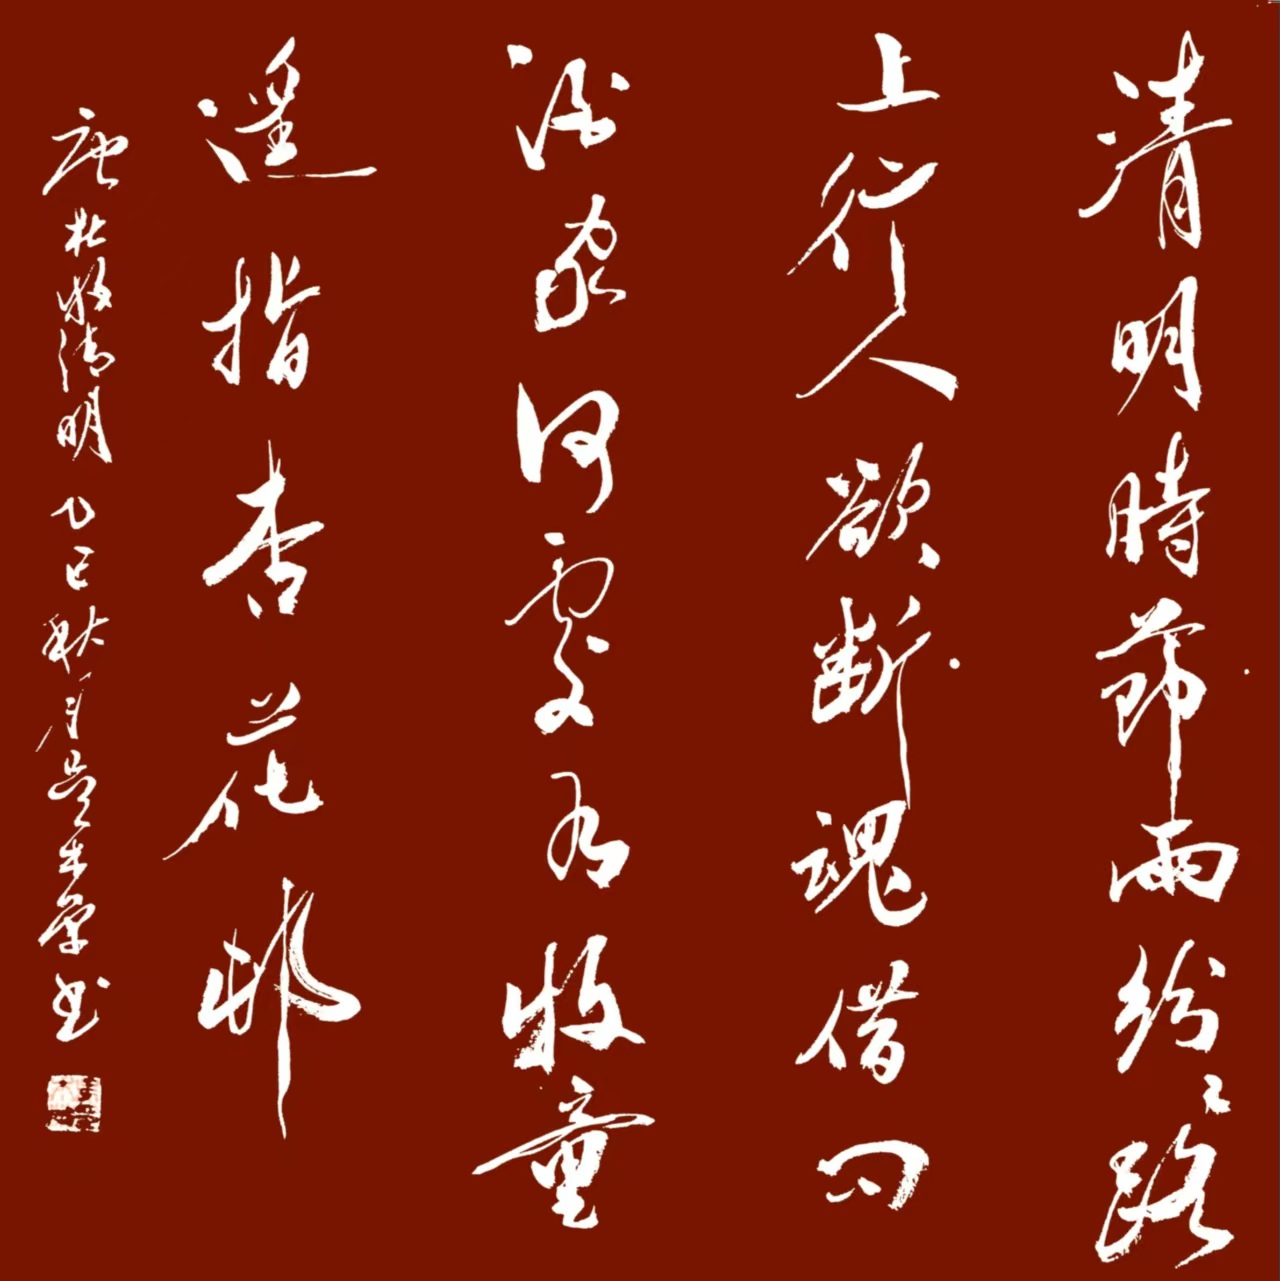 清明時節雨紛〻路
上行人欲断魂借问
酒家何處有牧童
遥指杏花邨
唐杜牧清明 乙巳秋月吴书